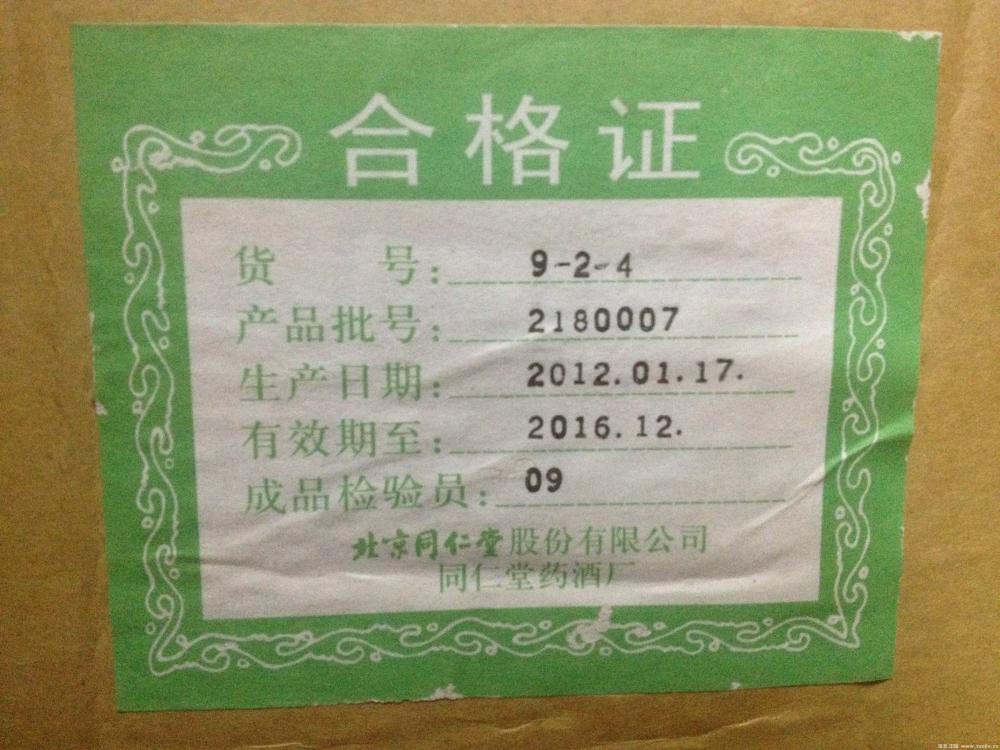 合格证
货号：9-2-4
产品批号：2180007
生产日期：2012.01.17.
有效期至：2016.12.
成品检验员：09
北京同仁堂股份有限公司
同仁堂药酒厂